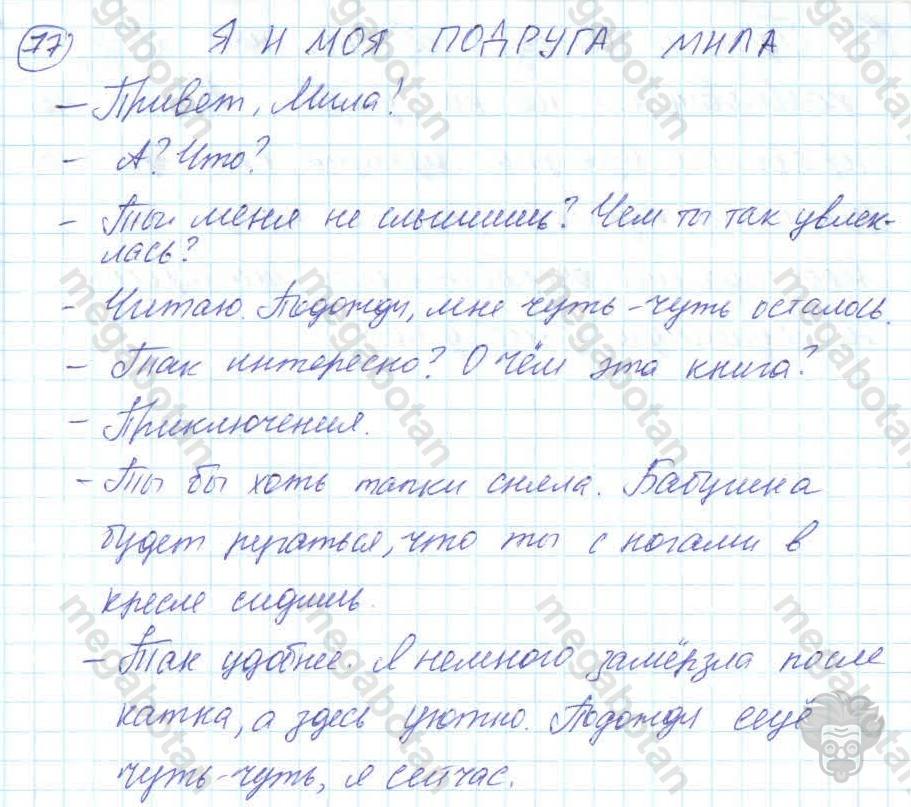 77 Я И МОЯ ПОДРУГА МИЛА
– Привет, Мила!
– А? Что?
– Ты меня не слышишь? Чем ты так увлек-
лась?
– Читаю. Подожди, мне чуть-чуть осталось.
– Так интересно? О чём эта книга?
– Приключения.
– Ты бы хоть тапки сняла. Бабушка
будет ругаться, что ты с ногами в
кресле сидишь.
– Так удобнее. Я немного замёрзла после
катка, а здесь уютно. Подожди ещё
чуть-чуть, я сейчас.
megabotan